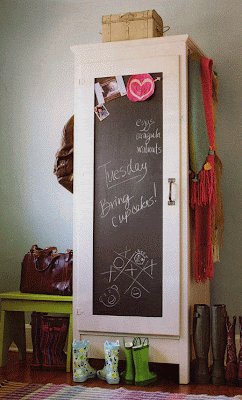 eggs
arugula
walnuts
Tuesday
Bring
cupcakes!